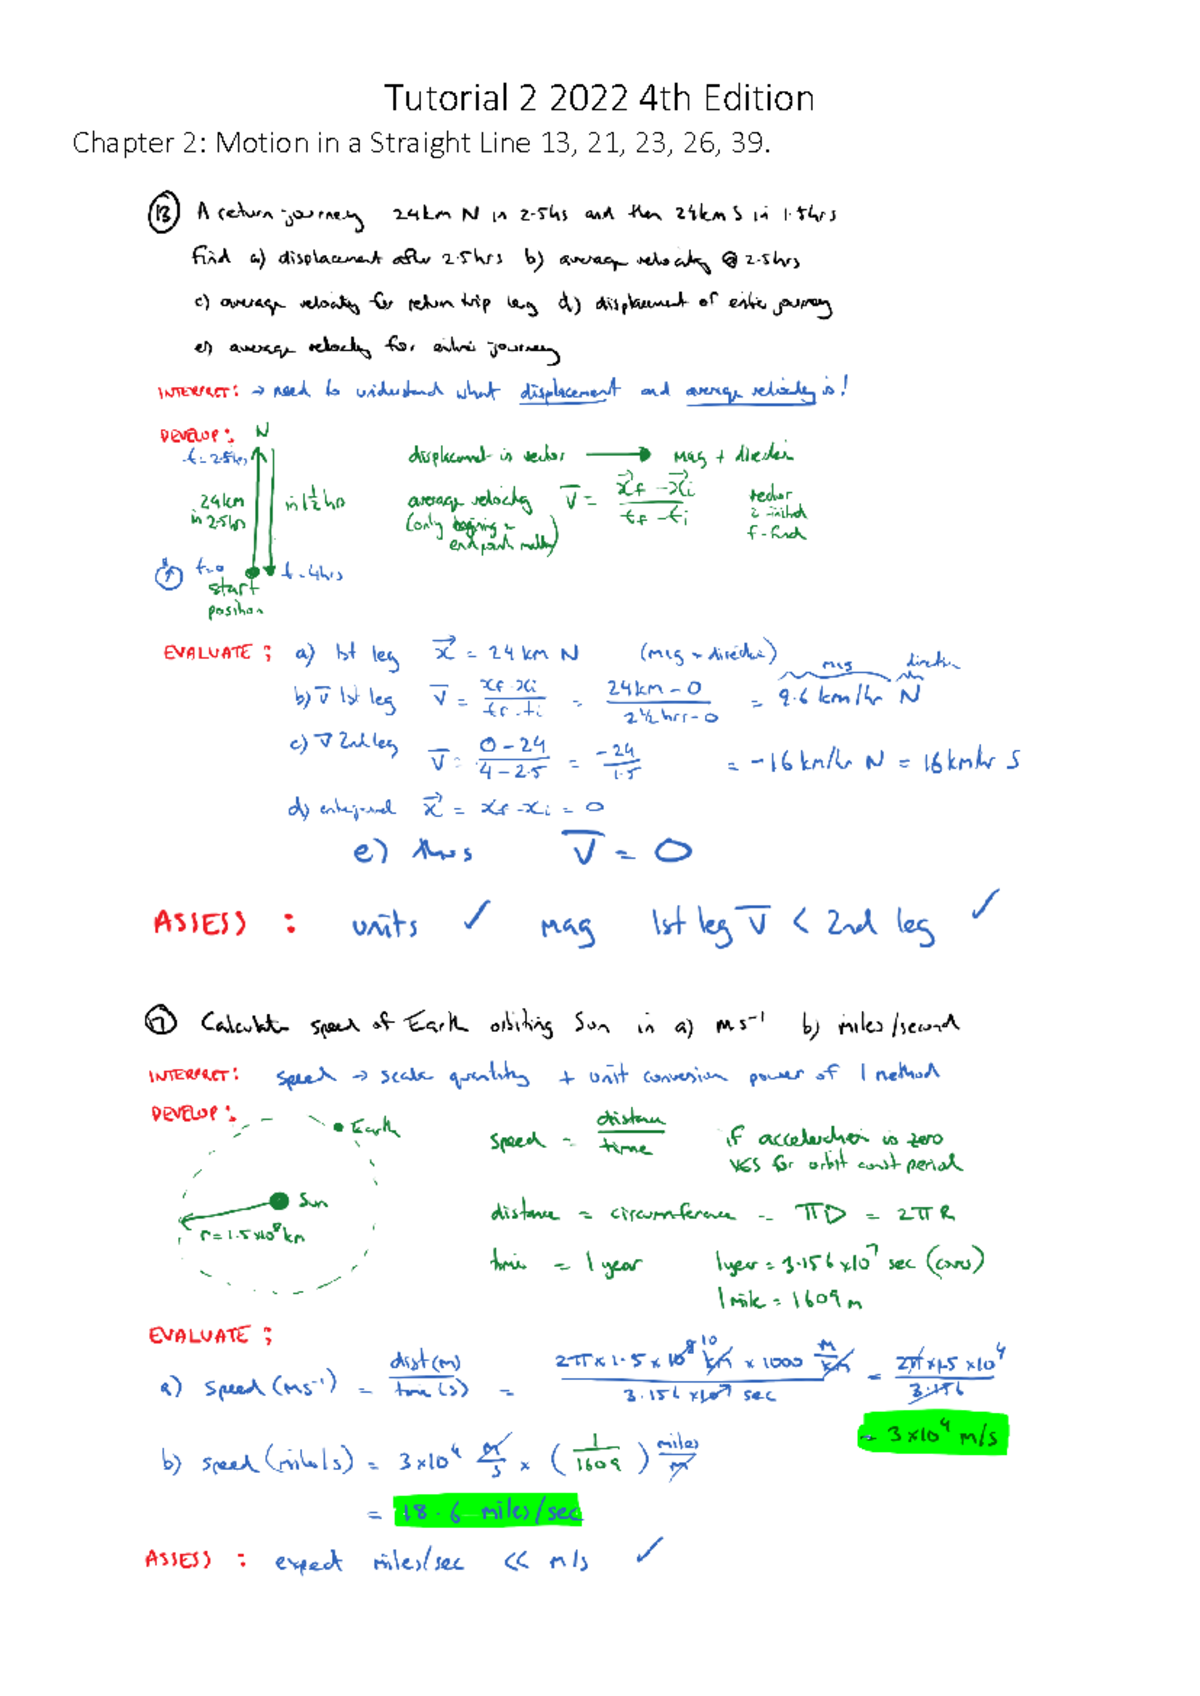 Tutorial 2 2022 4th Edition
Chapter 2: Motion in a Straight Line 13, 21, 23, 26, 39.
13 A return journey 24km N in 2.5hs and then 24km S in 1.5hrs
find a) displacement after 2.5hrs b) average velocity @ 2.5hrs
c) average velocity for return trip leg d) displacement of entire journey
e) average velocity for entire journey
INTERPRET: → need to understand what displacement and average velocity is!
DEVELOP: N
t=2.5hrs
24km in 2.5hr
in 1½ hr
t=0
start position
t=4hrs
displacement is vector → mag + direction
average velocity V̄ = (x⃗f - x⃗i)/(tf - ti)
(only begining + end point matter)
vector
i - initial
f - final
EVALUATE: a) 1st leg x⃗ = 24 km N (mag + direction)
b) v̄ 1st leg V̄ = (xf - xi)/(tf - ti) = (24km - 0)/(2½ hrs - 0) = 9.6 km/hr N
mag direction
c) v̄ 2nd leg V̄ = (0 - 24)/(4 - 2.5) = -24/1.5 = -16 km/hr N = 16 km/hr S
d) x⃗ = xf - xi = 0
e) thus V̄ = 0
ASSESS : units ✓ mag 1st leg V̄ < 2nd leg ✓
Calculate speed of Earth orbiting Sun in a) ms⁻¹ b) miles/second
INTERPRET: speed → scalar quantity + unit conversion power of 1 method
DEVELOP:
Earth
Sun
r=1.5x10⁸km
speed = distance/time if acceleration is zero
YES for orbit const period
distance = circumference = πD = 2πR
time = 1 year 1 year = 3.156x10⁷ sec
1 mile = 1609 m
EVALUATE :
a) speed (ms⁻¹) = dist(m)/time(s) = (2π x 1.5 x 10⁸ km x 1000 m/km)/(3.156 x10⁷ sec) = (2π x1.5 x10⁴)/3.156
10
= 3x10⁴ m/s
b) speed (miles/s) = 3x10⁴ m/s x (1/1609) miles/m
= 18.6 miles/sec
ASSESS : expect miles/sec << m/s ✓